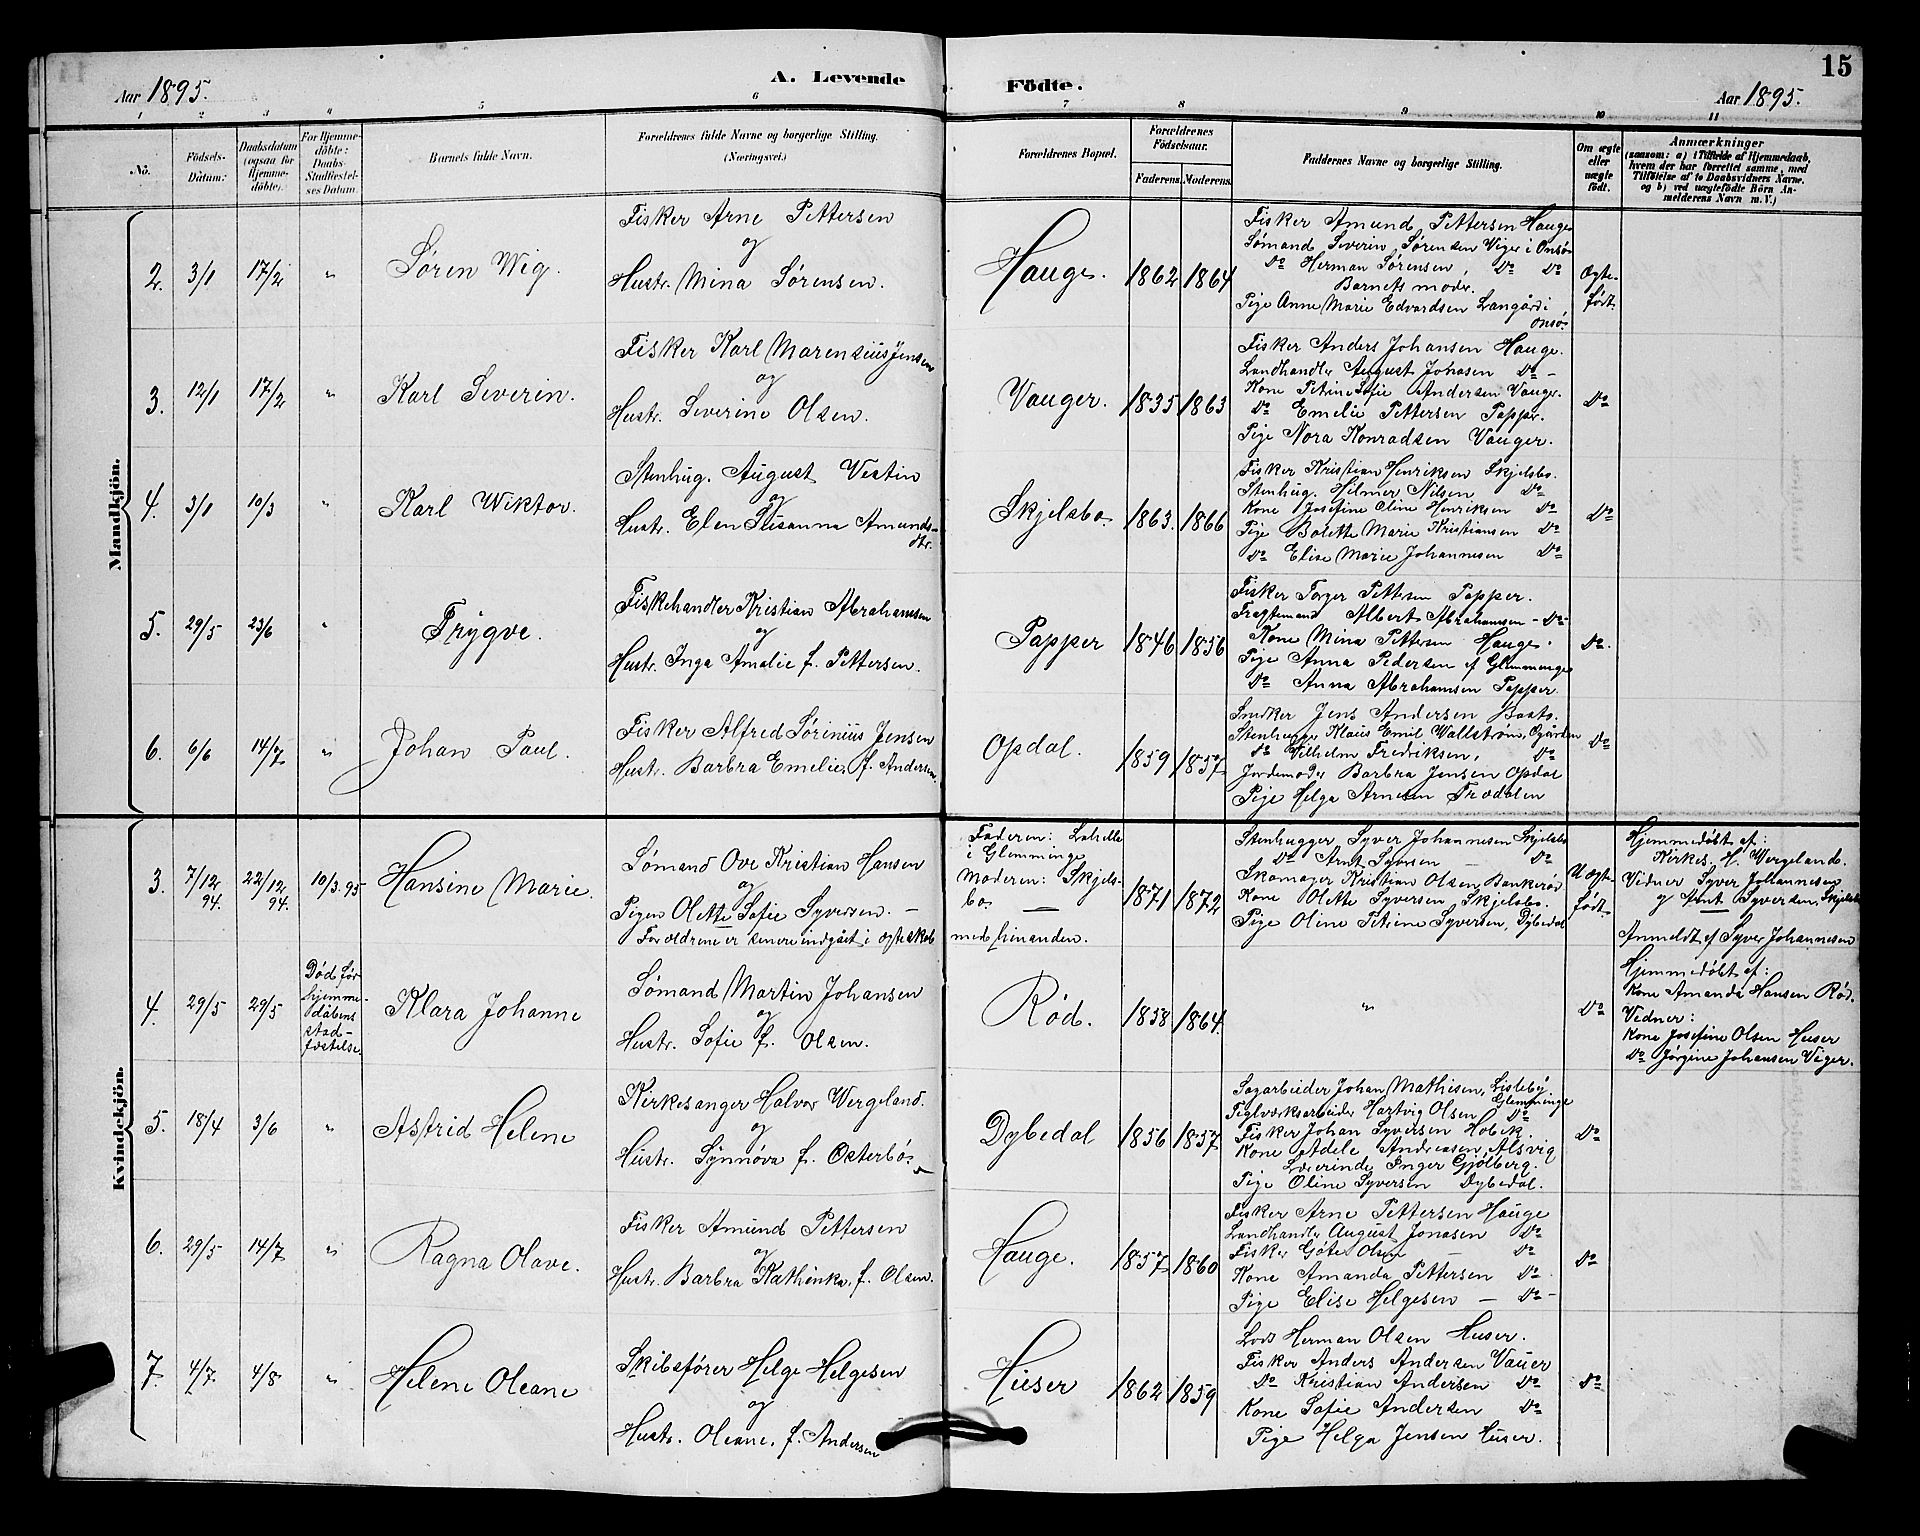 15
A. Levende Födte.
Aar 1895.
Aar 1895.
1 2 3 4 5 6 7 8 9 10 11
No.
Födsels-Datum.
Daabsdatum (ogsaa for Hjemme-döbte).
For Hjemme-döbte: Daabs-Stadfæstel-ses Datum.
Barnets fulde Navn.
Forældrenes fulde Navne og borgerlige Stilling. (Næringsvei.)
Forældrenes Bopæl.
Forældrenes Födselsaar.
Faderens. Moderens.
Faddernes Navne og borgerlige Stilling.
Om ægte eller uægte födt.
Anmærkninger
(saasom: a) i Tilfælde af Hjemmedaab, hvem der har forrettet samme, med Tilföielse af to Daabsvidners Navne. og b) ved uægtefödte Börn An-melderens Navn m. V.)
Mandkjön.
2. 3/1 17/2 " Søren Wig.
Fisker Arne Pettersen
og
Hustr. Mina Sørensen.
Hauge. 1862 1864
Fisker Amund Pettersen Hauge
Sømand Severin Sørensen Viger i Onsø
Do Herman Sørensen, Do Do
Barnets moder.
Pige Anne Marie Edvardsen Langård i
Onsø
Ægte-født.
3. 12/1 17/2 " Karl Severin.
Fisker Karl Marensius Jensen
og
Hustr. Severine Olsen.
Vauger. 1835 1863
Fisker Anders Johansen Hauge.
Landhandler August Jonasen Do -
Kone Petrine Sofie Andersen Vauger.
Do Emelie Pettersen Papper.
Pige Nora Konradsen Vauger.
Do
4. 3/1 10/3 " Karl Wiktor.
Stenhug. August Vestin
og
Hustr. Elen Susanna Amunds-
dtr.
Skjelsbo 1863. 1866
Fisker Kristian Henriksen Skjelsbo.
Stenhug. Hilmer Nilsen Do
Kone Josefine Oline Henriksen Do
Pige Bolette Marie Kristiansen Do
Do Elise Marie Johannesen Do
Do
5. 29/5 23/6 " Trygve.
Fiskehandler Kristian Abrahamsen
og
Hustr. Inga Amalie f. Pettersen.
Papper 1846 1856
Fisker Torger Pettersen Papper.
Fragtemand Albert Abrahamsen - Do -
Kone Mina Pettersen Hauge.
Pige Anna Pedersen af Glemminge
Do Anna Abrahamsen Papper.
Do.
6. 6/6 14/7 " Johan Paul.
Fisker Alfred Sørinius Jensen
Hustr. Barbra Emelie, f. Andersen.
Opdal. 1859 1857
Snedker Jens Andersen Basto.
Stenhugger Klaus Emil Wallstrøm, Øgården
Do Vilhelm Fredriksen, Do
Jordemoder Barbra Jensen Opdal
Pige Helga Arnesen Trædalen
Do
Kvindekjön.
3. 7/12 94. 22/12 94. 10/3.95 Hansine Marie.
Sømand Ove Kristian Hansen
og
Pigen Olette Sofie Syversen. —
Forældrene er senere indgået i ægteskab
med hinanden.
Faderen: Lahelle
i Glemminge
Moderen: Skjels-
bo.
1871 1872
Stenhugger Syver Johannesen Skjelsbo
Do Arnt Syversen — Do
Skomager Kristian Olsen, Bankerød
Kone Olette Syversen Skjelsbo.
Pige Oline Petrine Syversen, Dybedal
Uægte født
Hjemmedøbt af:
Kirkes. H. Wergeland.
Vidner Syver Johannesen
og Arnt Syversen, Skjelsbo
Anmeldt af Syver Johannesen
4. 29/5 29/5
Død før
hjemme-
dåbens
stad-
fæstelse.
Klara Johanne
Sømand Martin Johansen
og
Hustr. Sofie f. Olsen.
Rød. 1858 1864
"
Do
Hjemmedøbt af:
Kone Amanda Hansen Rød.
Vidner:
Kone Josefine Olsen Huser
Do Jørgine Johansen Viger.
5. 18/4 3/6 " Astrid Helene
Kirkesanger Halvor Wergeland.
og
Hustr. Synnøva f. Østerbø.
Dybedal 1856 1857
Sagarbeider Johan Mathisen, Lisleby
Glemminge
Teglværksarbeider Hartvig Olsen Do
Fisker Johan Syversen Holick.
Kone Adele Andreasen, Alsvig
Lærerinde Inger Gjølberg.
Pige Oline Syversen Dybedal.
Do
6. 29/5 14/7 " Ragna Olave.
Fisker Amund Pettersen
og
Hustr. Barbra Kathinka, f. Olsen.
Hauge. 1857 1860
Fisker Arne Pettersen Hauge
Landhandler August Jonasen Do
Fisker Gøte Olsen — Do
Kone Amanda Pettersen Do
Pige Elise Helgesen — Do -
Do
7. 4/7 4/8 " Helene Oleane
Skibsfører Helge Helgesen
og
Hustr. Oleane, f. Andersen
Huser 1862 1859
Lods Herman Olsen Huser.
Fisker Anders Andersen Vauer
Do Kristian Andersen Do
Kone Sofie Andersen Do
Pige Helga Jensen Huser.
Do